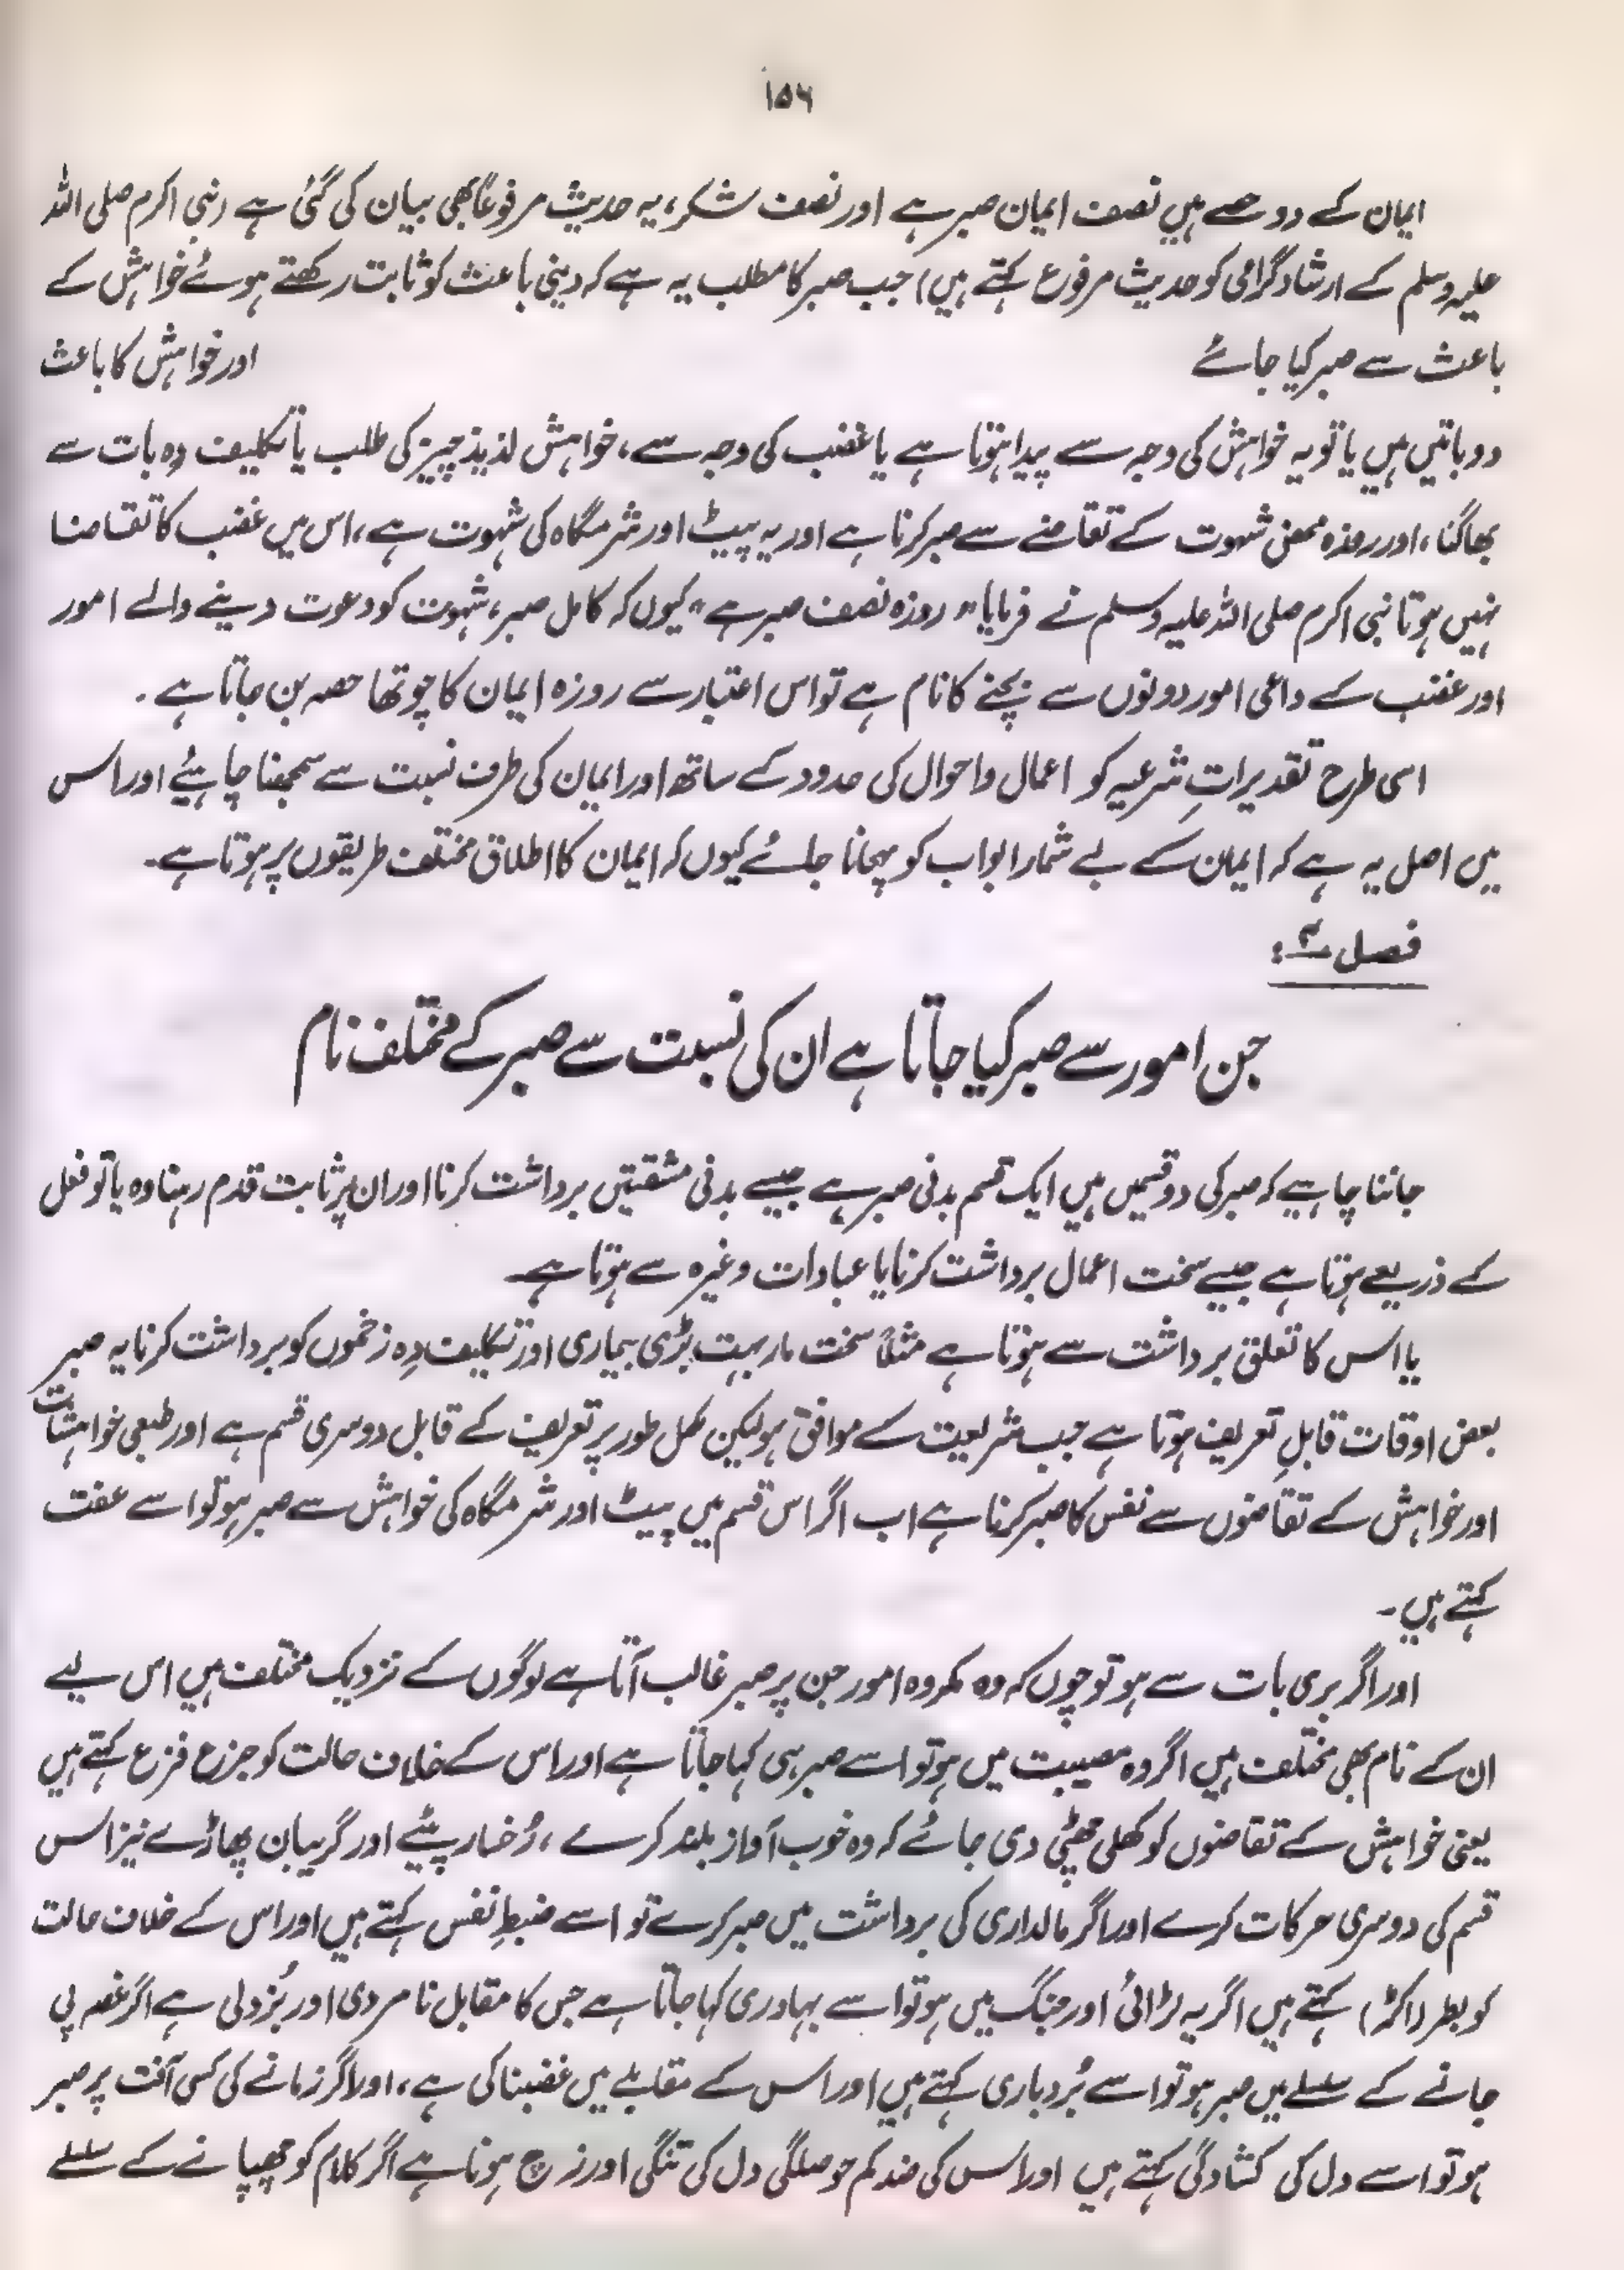 ۱۵۶
ایمان کے دو حصے ہیں نصف ایمان صبر ہے اور نصف شکر، یہ حدیث مرفوعاً بھی بیان کی گئی ہے (نبی اکرم صلی اللہ
علیہ وسلم کے ارشاد گرامی کو حدیث مرفوع کہتے ہیں) جب صبر کا مطلب یہ ہے کہ دینی باعث کو ثابت رکھتے ہوئے خواہش کے
باعث سے صبر کیا جائے اور خواہش کا باعث
دو باتیں ہیں یا تو یہ خواہش کی وجہ سے پیدا ہوتا ہے یا غضب کی وجہ سے، خواہش لذیذ چیز کی طلب یا تکلیف دہ بات سے
بھاگنا، اور روزہ محض شہوت کے تقاضے سے صبر کرنا ہے اور یہ پیٹ اور شرمگاہ کی شہوت ہے، اس میں غضب کا تقاضا
نہیں ہوتا نبی اکرم صلی اللہ علیہ وسلم نے فرمایا "روزہ نصف صبر ہے" کیوں کہ کامل صبر، شہوت کو دعوت دینے والے امور
اور غضب کے داعی امور دونوں سے بچنے کا نام ہے تو اس اعتبار سے روزہ ایمان کا چوتھا حصہ بن جاتا ہے۔
اسی طرح تقدیراتِ شرعیہ کو اعمال و احوال کی حدود کے ساتھ اور ایمان کی طرف نسبت سے سمجھنا چاہیئے اور اس
میں اصل یہ ہے کہ ایمان کے بے شمار ابواب کو پہچانا جائے کیوں کہ ایمان کا اطلاق مختلف طریقوں پر ہوتا ہے۔
فصل ۴:
جن امور سے صبر کیا جاتا ہے ان کی نسبت سے صبر کے مختلف نام
جاننا چاہیے کہ صبر کی دو قسمیں ہیں ایک قسم بدنی صبر ہے جیسے بدنی مشقتیں برداشت کرنا اور ان پر ثابت قدم رہنا وہ یا تو فعل
کے ذریعے ہوتا ہے جیسے سخت اعمال برداشت کرنا یا عبادات وغیرہ سے ہوتا ہے۔
یا اس کا تعلق برداشت سے ہوتا ہے مثلاً سخت مار بہت بڑی بیماری اور تکلیف دِہ زخموں کو برداشت کرنا یہ صبر
بعض اوقات قابلِ تعریف ہوتا ہے جب شریعت کے موافق ہو لیکن مکمل طور پر تعریف کے قابل دوسری قسم ہے اور طبعی خواہشات
اور خواہش کے تقاضوں سے نفس کا صبر کرنا ہے اب اگر اس قسم میں پیٹ اور شرمگاہ کی خواہش سے صبر ہو تو اسے عفت
کہتے ہیں۔
اور اگر بری بات سے ہو تو چوں کہ وہ مکروہ امور جن پر صبر غالب آتا ہے لوگوں کے نزدیک مختلف ہیں اس لیے
ان کے نام بھی مختلف ہیں اگر وہ مصیبت میں ہو تو اسے صبر ہی کہا جاتا ہے اور اس کے خلاف حالت کو جزع فزع کہتے ہیں
یعنی خواہش کے تقاضوں کو کھلی چھٹی دی جائے کہ وہ خوب آواز بلند کرے، رُخسار پیٹے اور گریبان پھاڑے نیز اس
قسم کی دوسری حرکات کرے اور اگر مالداری کی برداشت میں صبر کرے تو اسے ضبطِ نفس کہتے ہیں اور اس کے خلاف حالت
کو بطر (اکڑ) کہتے ہیں اگر یہ لڑائی اور جنگ میں ہو تو اسے بہادری کہا جاتا ہے جس کا مقابل نامردی اور بُزدلی ہے اگر غصہ پی
جانے کے سلسلے میں صبر ہو تو اسے بُردباری کہتے ہیں اور اس کے مقابلے میں غضبناکی ہے، اور اگر زمانے کی کسی آفت پر صبر
ہو تو اسے دل کی کشادگی کہتے ہیں اور اس کی ضد کم حوصلگی دل کی تنگی اور زچ ہونا ہے اگر کلام کو چھپانے کے سلسلے